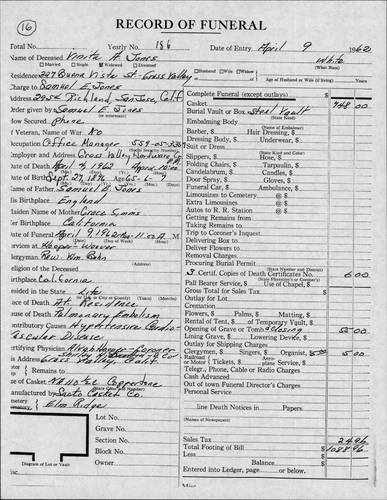 16
RECORD OF FUNERAL
Total No. Yearly No. 186 Date of Entry April 9 1962
Name of Deceased Vinita A. Jones White
Married Single Widowed Divorced Husband Wife Widow (What Race)
Residence 227 Buena Vista St. Grass Valley Age of Husband or Wife (if living)
Charge to Samuel E. Jones
2954 Richland, San Jose, Calif
Order given by Samuel E. Jones
How Secured Phone
If Veteran, War No
Occupation Office Manager
Employer and Address Grass Valley Hardware Co
Date of Death April 7, 1962
Date of Birth Sept. 27, 1896 Age 65-6-9
Name of Father Samuel S. Jones
His Birthplace England
Maiden Name of Mother Grace Simms
Her Birthplace California
Date of Funeral April 9, 1962 11:00 A.M.
Services at Hooper-Weaver
Clergyman Rev. Wm.
Religion of the Deceased
Birthplace California
Resided in the State Life
Place of Death At Residence
Cause of Death Pulmonary Embolism
Contributory Causes Hypertensive Cardio-
Vascular Disease
Certifying Physician
His Address Grass Valley, Calif
Remains to
Size of Casket
Manufactured by
Cemetery Elm Ridge
Lot No.
Grave No.
Section No.
Block No.
Owner
Diagram of Lot or Vault
Complete Funeral (except outlays) $
Casket 748 00
Burial Vault or Box Steel Vault
(State Kind)
Embalming Body
(Name of Embalmer)
Barber, $ Hair Dressing, $
Dressing Body, $ Underwear, $
Suit or Dress
Slippers, $ Hose, $
Folding Chairs, $ Tarpaulin, $
Candelabrum, $ Candles, $
Door Spray, $ Gloves, $
Funeral Car, $ Ambulance, $
Limousines to Cemetery @ $
Extra Limousines @ $
Autos to R. R. Station @ $
Getting Remains
Taking Remains
Trip to Coroner's Inquest
Delivering Box to
Deliver Flowers to
Removal Charges
Procuring Burial Permit
(State Number and District)
3 Certif. Copies of Death Certificates No. 6 00
(State Physician's or Coroner's)
Pall Bearer Service Use of Chapel, $
Gross Total for Sales Tax $
Outlay for Lot
Cremation
Flowers, $ Palms, $ Matting, $
Rental of Tent, $ of Temporary Vault, $
Opening of Grave or Tomb & closing 55 00
Lining Grave, $ Lowering Device, $
Outlay for Shipping Charges
Clergymen, $ Singers, $ Organist, $ 5.00 5 00
Telegr., Phone, Cable or Radio Charges
Cash Advanced
Out of town Funeral Director's Charges
Personal Service
line Death Notices in Papers
(Names of Newspapers)
Sales Tax $ 24 96
Total Footing of Bill $
Less $
Balance $
Entered into Ledger, page or below.